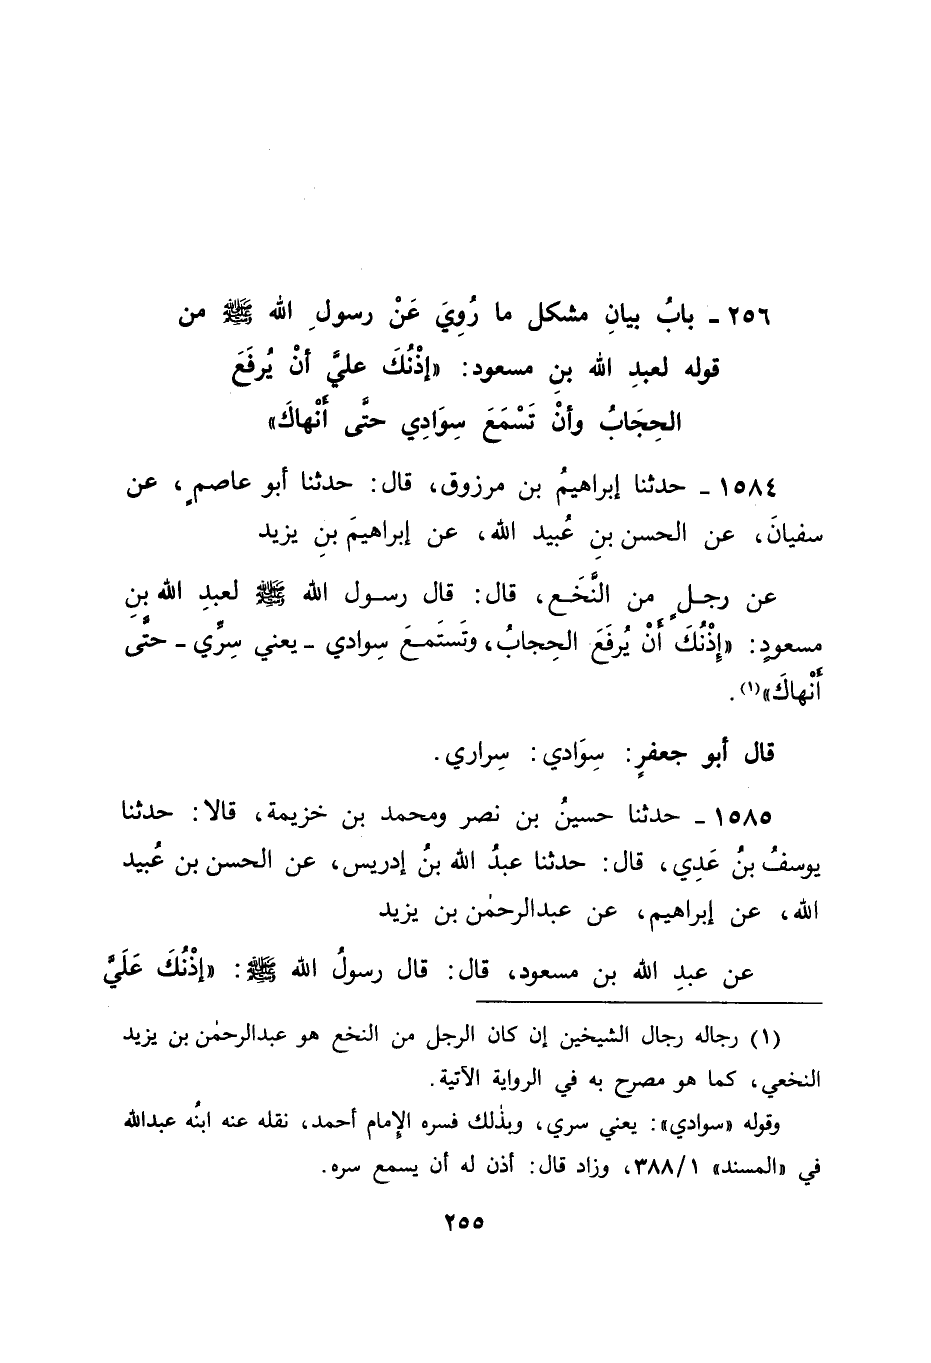 ٢٥٦ ـ بابُ بيانِ مشكل ما رُوِيَ عَنْ رسولِ الله ﷺ من
قوله لعبدِ الله بنِ مسعود: «إذْنُكَ عليَّ أنْ يُرفَعَ
الحِجَابُ وأنْ تَسْمَعَ سِوَادِي حتَّى أَنْهاكَ»
١٥٨٤ ـ حدثنا إبراهيمُ بن مرزوق، قال: حدثنا أبو عاصمٍ، عن
سفيانَ، عن الحسن بنِ عُبيد الله، عن إبراهيمَ بنِ يزيد
عن رجلٍ من النَّخَع، قال: قال رسول الله ﷺ لعبدِ الله بنِ
مسعودٍ: «إِذْنُكَ أَنْ يُرفَعَ الحِجابُ، وتَستَمعَ سِوادي ـ يعني سِرِّي ـ حتَّى
أَنْهاكَ»(١).
قال أبو جعفرٍ: سِوَادي: سِراري.
١٥٨٥ ـ حدثنا حسينُ بن نصر ومحمد بن خزيمة، قالا: حدثنا
يوسفُ بنُ عَدِي، قال: حدثنا عبدُ الله بنُ إدريس، عن الحسن بن عُبيد
الله، عن إبراهيم، عن عبدالرحمٰن بن يزيد
عن عبدِ الله بن مسعود، قال: قال رسولُ الله ﷺ: «إذْنُكَ عَلَيَّ
(١) رجاله رجال الشيخين إن كان الرجل من النخع هو عبدالرحمٰن بن يزيد
النخعي، كما هو مصرح به في الرواية الآتية.
وقوله «سوادي»: يعني سري، وبذٰلك فسره الإمام أحمد، نقله عنه ابنُه عبدالله
في «المسند» ٣٨٨/١، وزاد قال: أذن له أن يسمع سره.
٢٥٥